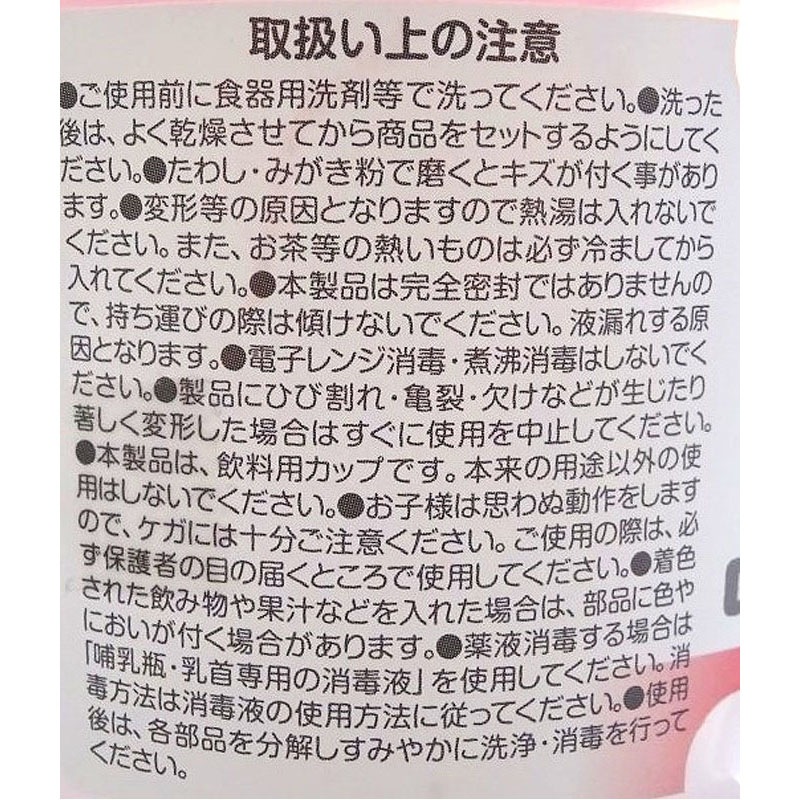 取扱い上の注意
●ご使用前に食器用洗剤等で洗ってください。●洗った
後は、よく乾燥させてから商品をセットするようにしてく
ださい。●たわし・みがき粉で磨くとキズが付く事があり
ます。●変形等の原因となりますので熱湯は入れないで
ください。また、お茶等の熱いものは必ず冷ましてから
入れてください。●本製品は完全密封ではありませんの
で、持ち運びの際は傾けないでください。液漏れする原
因となります。●電子レンジ消毒・煮沸消毒はしないでく
ださい。●製品にひび割れ・亀裂・欠けなどが生じたり
著しく変形した場合はすぐに使用を中止してください。
●本製品は、飲料用カップです。本来の用途以外の使
用はしないでください。●お子様は思わぬ動作をします
ので、ケガには十分ご注意ください。ご使用の際は、必
ず保護者の目の届くところで使用してください。●着色
された飲み物や果汁などを入れた場合は、部品に色や
においが付く場合があります。●薬液消毒する場合は
「哺乳瓶・乳首専用の消毒液」を使用してください。消
毒方法は消毒液の使用方法に従ってください。●使用
後は、各部品を分解しすみやかに洗浄・消毒を行って
ください。